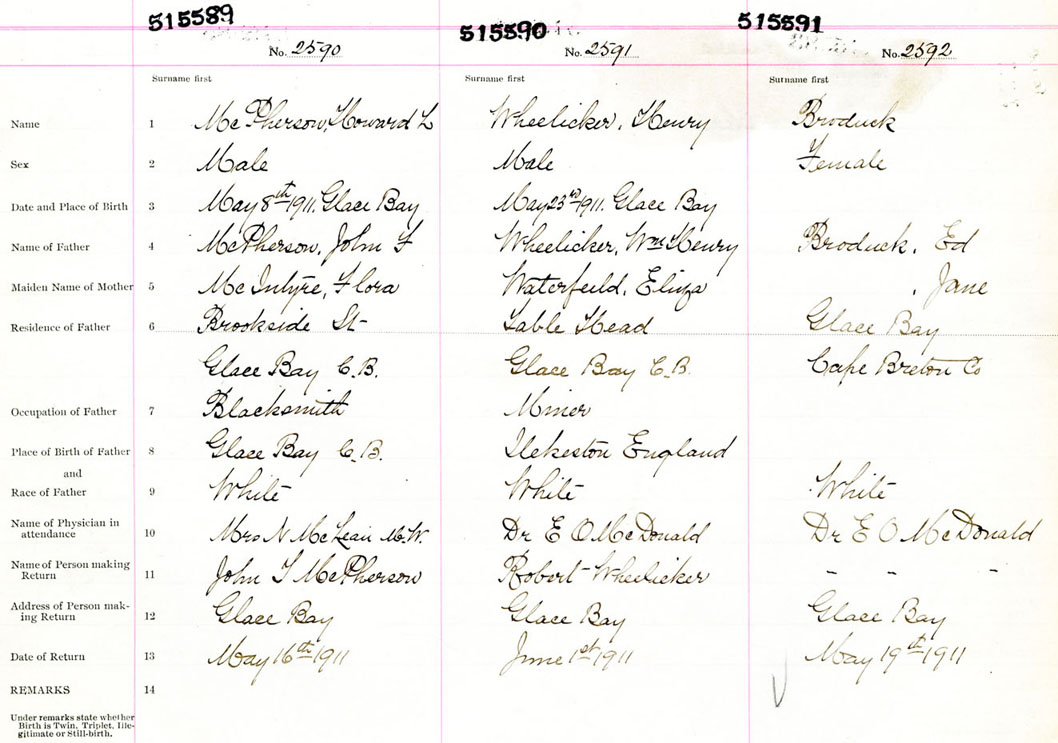 515589 515590 515591
No. 2590 No. 2591 No. 2592
Surname first Surname first Surname first
Name 1 McPherson, Howard L Wheelicker, Henry Broduck
Sex 2 Male Male Female
Date and Place of Birth 3 May 8th 1911. Glace Bay May 23rd 1911. Glace Bay
Name of Father 4 McPherson, John F Wheelicker, Wm Henry Broduck, Ed
Maiden Name of Mother 5 McIntyre, Flora Waterfeild, Eliza , Jane
Residence of Father 6 Brookside St- Sable Head Glace Bay
Glace Bay C.B. Glace Bay C.B. Cape Breton Co
Occupation of Father 7 Blacksmith Miner
Place of Birth of Father 8 Glace Bay C.B. Ilekeston England
and
Race of Father 9 White White White
Name of Physician in
attendance 10 Mrs N McLean M.W. Dr E O McDonald Dr E O McDonald
Name of Person making
Return 11 John McPherson Robert Wheelicker - - -
Address of Person mak-
ing Return 12 Glace Bay Glace Bay Glace Bay
Date of Return 13 May 16th 1911 June 1st 1911 May 19th 1911
REMARKS 14
Under remarks state whether
Birth is Twin, Triplet, Ille-
gitimate or Still-birth.